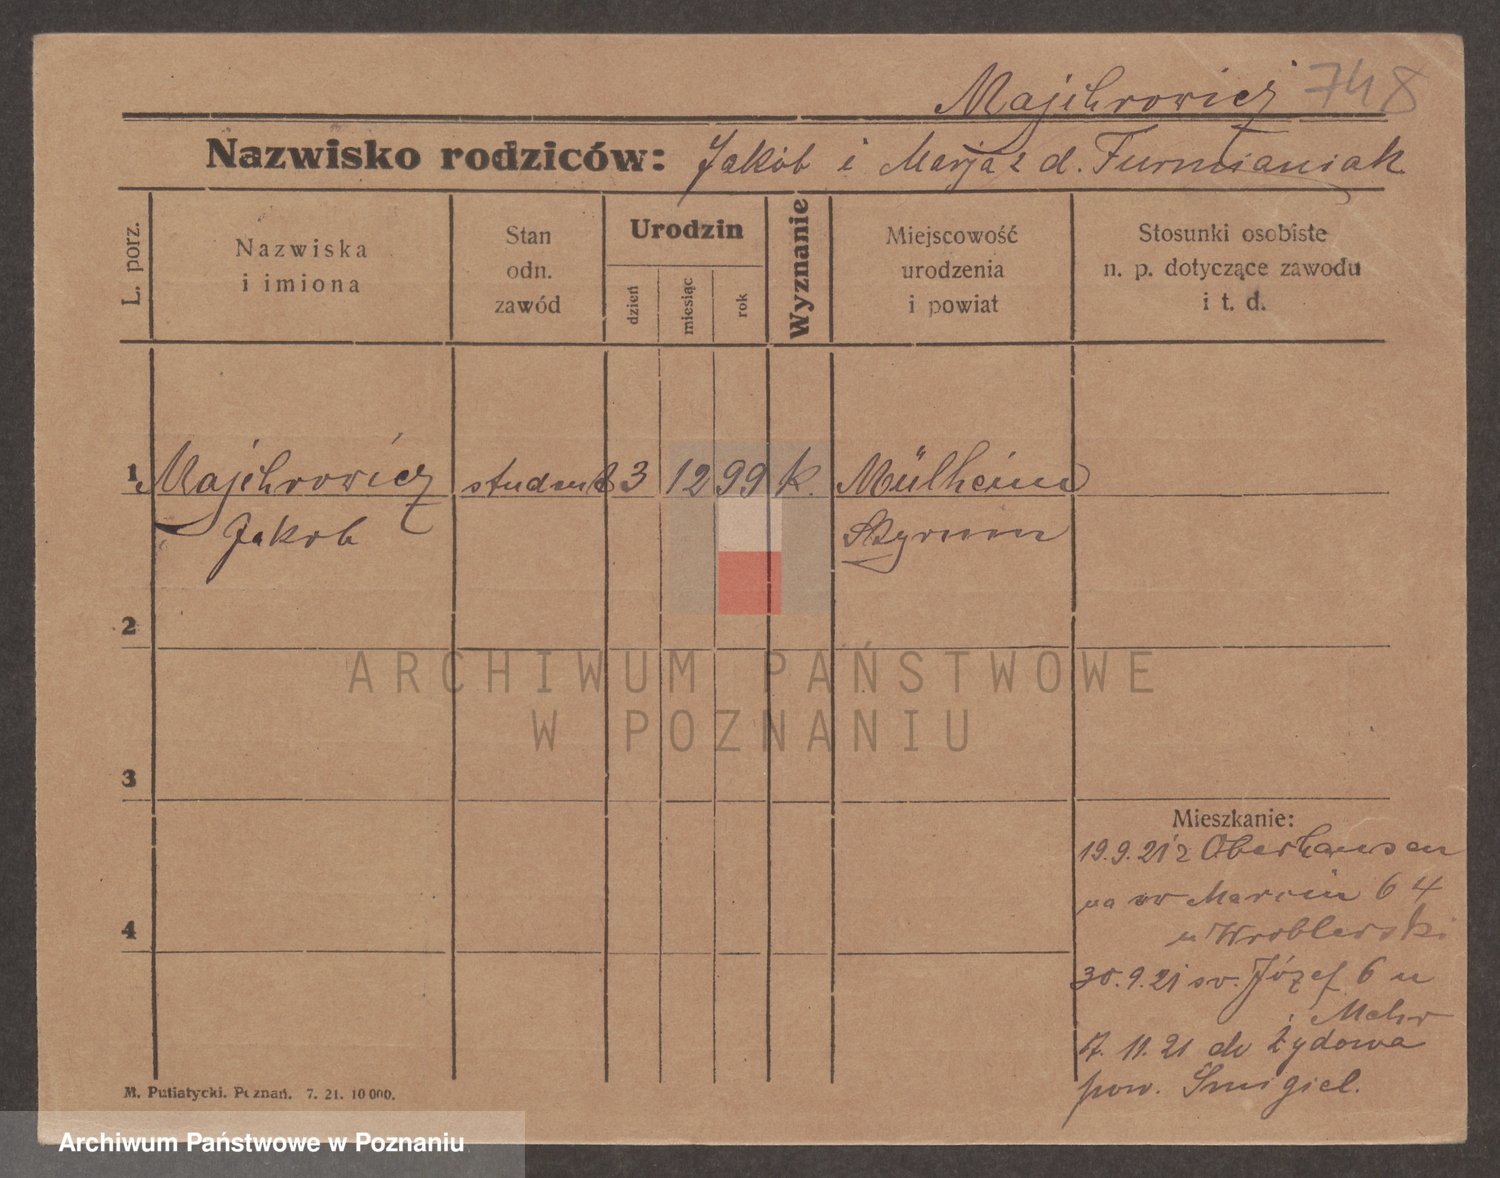 Majchrowicz 748
Nazwisko rodziców: Jakób i Marja z d. Furmaniak
L. porz.
Nazwiska
i imiona
Stan
odn.
zawód
Urodzin
dzień
miesiąc
rok
Wyznanie
Miejscowość
urodzenia
i powiat
Stosunki osobiste
n. p. dotyczące zawodu
i t. d.
1 Majchrowicz student 3 12 99 k. Mülheim
Jakob Styrum
2
3
4
Mieszkanie:
19.9.21 z Oberhausen
na św Marcin 64
u Wroblerski
30.9.21 św. Józef 6 u
Mehr
7. 11. 21 do Żydowa
pow. Śmigiel.
M. Putiatycki. Poznań. 7. 21. 10 000.
ARCHIWUM PAŃSTWOWE
W POZNANIU
Archiwum Państwowe w Poznaniu